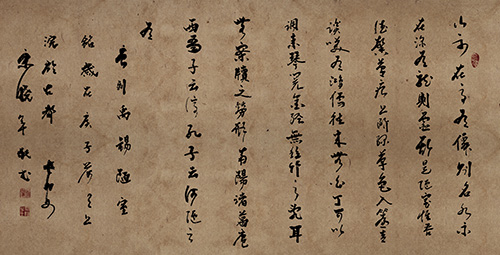 山不在高有僊則名水不
在深有龍則靈斯是陋室惟吾
德馨苔痕上階綠草色入簾青
談笑有鴻儒往來無白丁可以
調素琴閱金經無絲竹之亂耳
無案牘之勞形南陽諸葛廬
西蜀子云亭孔子云何陋之
有
劉禹錫陋室
銘歲在庚子